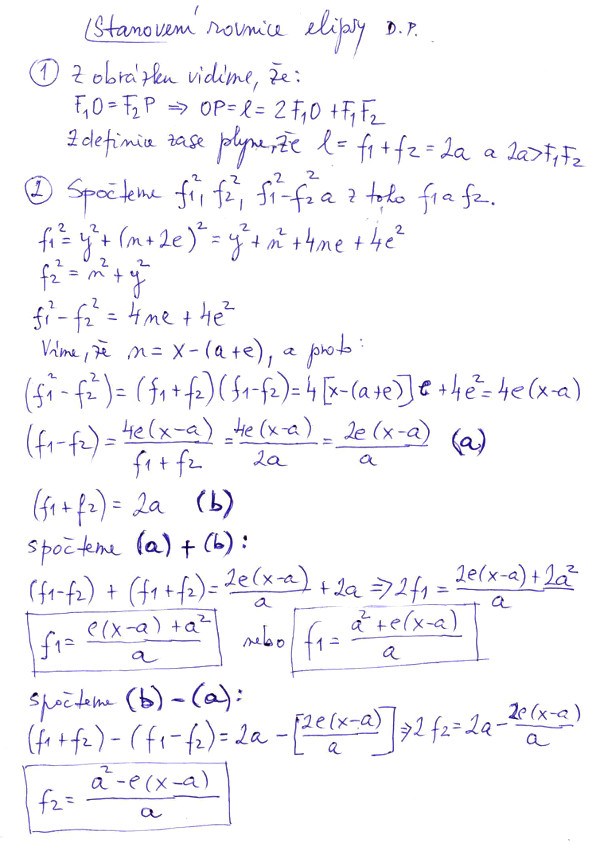 Stanovení rovnice elipsy D.P.
① Z obrázku vidíme, že:
F₁O = F₂P ⇒ OP = l = 2F₁O + F₁F₂
Z definice zase plyne, že l = f₁ + f₂ = 2a a 2a > F₁F₂
② Spočteme f₁², f₂², f₁² - f₂² a z toho f₁ a f₂.
f₁² = y² + (n + 2e)² = y² + n² + 4ne + 4e²
f₂² = n² + y²
f₁² - f₂² = 4ne + 4e²
Víme, že n = x - (a + e), a proto:
(f₁² - f₂²) = (f₁ + f₂)(f₁ - f₂) = 4[x - (a + e)]e + 4e² = 4e(x - a)
(f₁ - f₂) = 4e(x - a)/(f₁ + f₂) = 4e(x - a)/2a = 2e(x - a)/a (a)
(f₁ + f₂) = 2a (b)
spočteme (a) + (b):
(f₁ - f₂) + (f₁ + f₂) = 2e(x - a)/a + 2a ⇒ 2f₁ = (2e(x - a) + 2a²)/a
f₁ = (e(x - a) + a²)/a nebo f₁ = (a² + e(x - a))/a
spočteme (b) - (a):
(f₁ + f₂) - (f₁ - f₂) = 2a - [2e(x - a)/a] ⇒ 2f₂ = 2a - 2e(x - a)/a
f₂ = (a² - e(x - a))/a